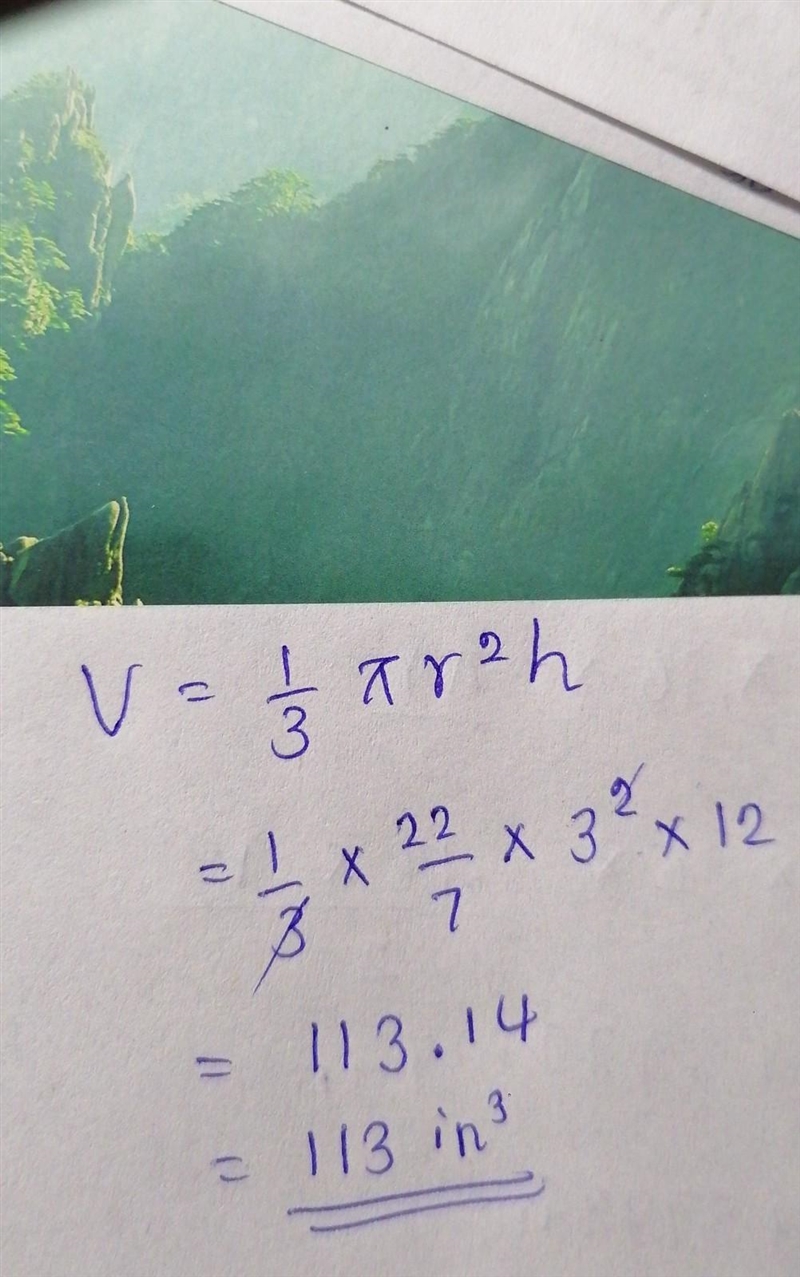 V = 1/3 π r²h
= 1/3 x 22/7 x 3² x 12
= 113.14
= 113 in³